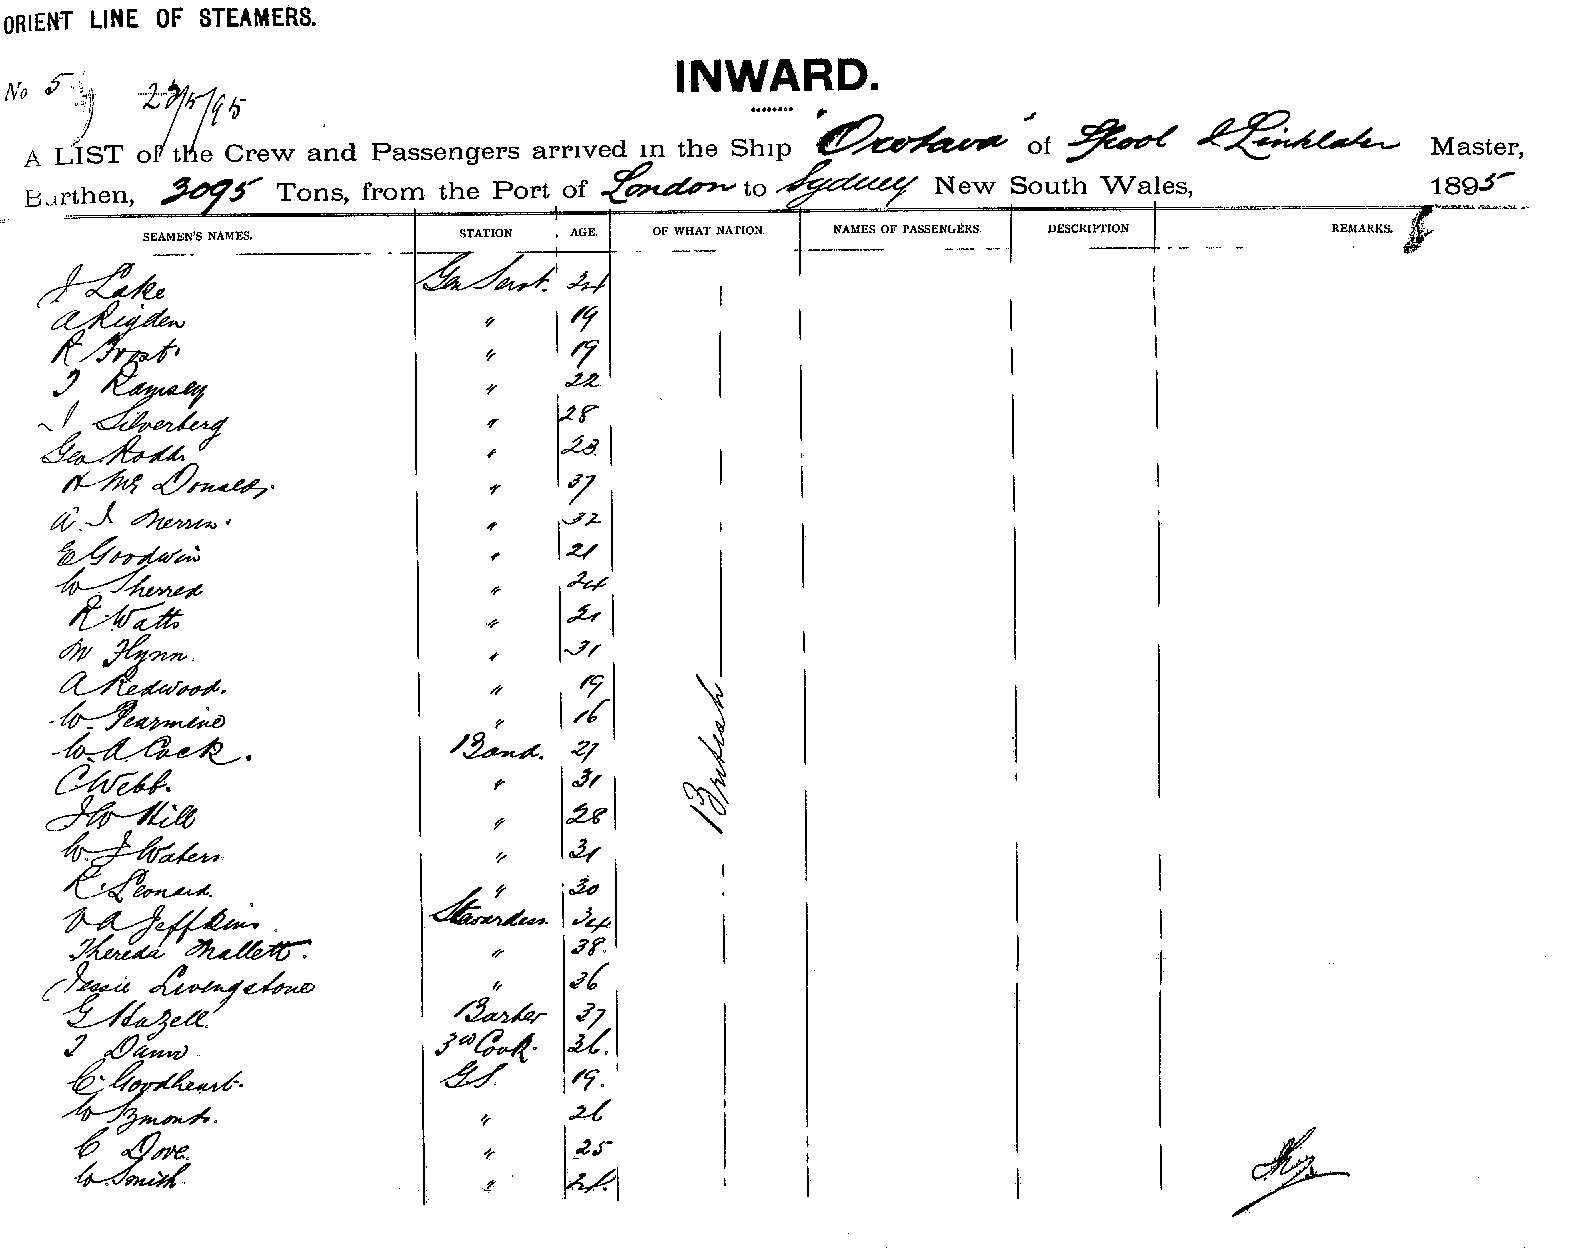 ORIENT LINE OF STEAMERS.
INWARD.
No 5
23/5/95
A LIST of the Crew and Passengers arrived in the Ship "Orotava" of L'pool J Linklater Master,
Burthen, 3095 Tons, from the Port of London to Sydney New South Wales, 1895
SEAMEN'S NAMES. STATION AGE. OF WHAT NATION. NAMES OF PASSENGERS. DESCRIPTION REMARKS.
J Lake Gen Servt. 24
A Rigden " 19
R Frost. " 19
T Ramsey " 22
J Silverberg " 28
Geo Rodd " 23
H Mc Donald " 37
A. J. Merrin. " 32
E Goodwin " 21
W Sherred " 24
R Watts " 21
M Flynn. " 31
A Redwood. " 19
W. Pearmine " 16
W. A. Cock. Band. 21
C Webb. " 31
J W Hill " 28
W. J Waters " 31
R. Leonard. " 30
V A Jeffkins Stewardess 34
Theresa Mallett. " 38.
Jessie Livingstone " 36
G Hazell. Barber 37
T Dann 3rd Cook. 36.
C. Goodheart. G S. 19.
W Symonds. " 26
C Dove " 25
W Smith " 24.
British